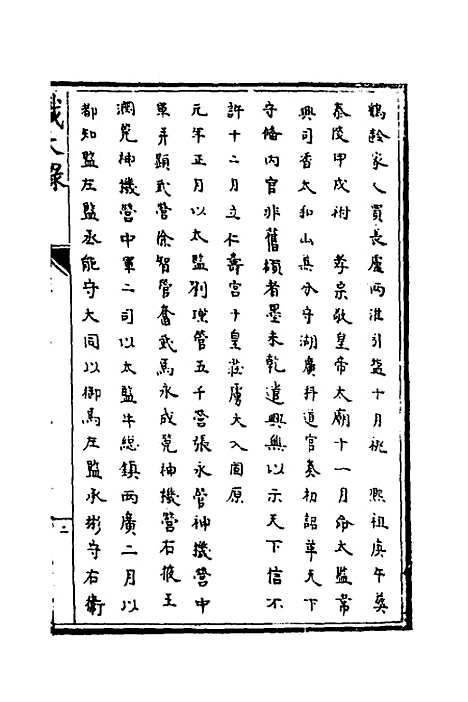 鶴齡家人買長盧兩淮引盜十月祧　熙祖庚午葬
泰陵甲戌祔　孝宗敬皇帝太廟十一月命太監常
興司香太和山兼分守湖廣科道官奏初詔革天下
守備內官非舊額者墨未乾遣興無以示天下信不
許十二月立仁壽宮十皇莊虜大入固原
元年正月以太監劉瑾管五千營張永管神機營中
軍并顯武營徐智管奮武馬永成管神機營右掖王
潤管神機營中軍二司以太監牛總鎮兩廣二月以
都知監左監丞能守大同以御馬左監丞彬守右衛
識大錄
二